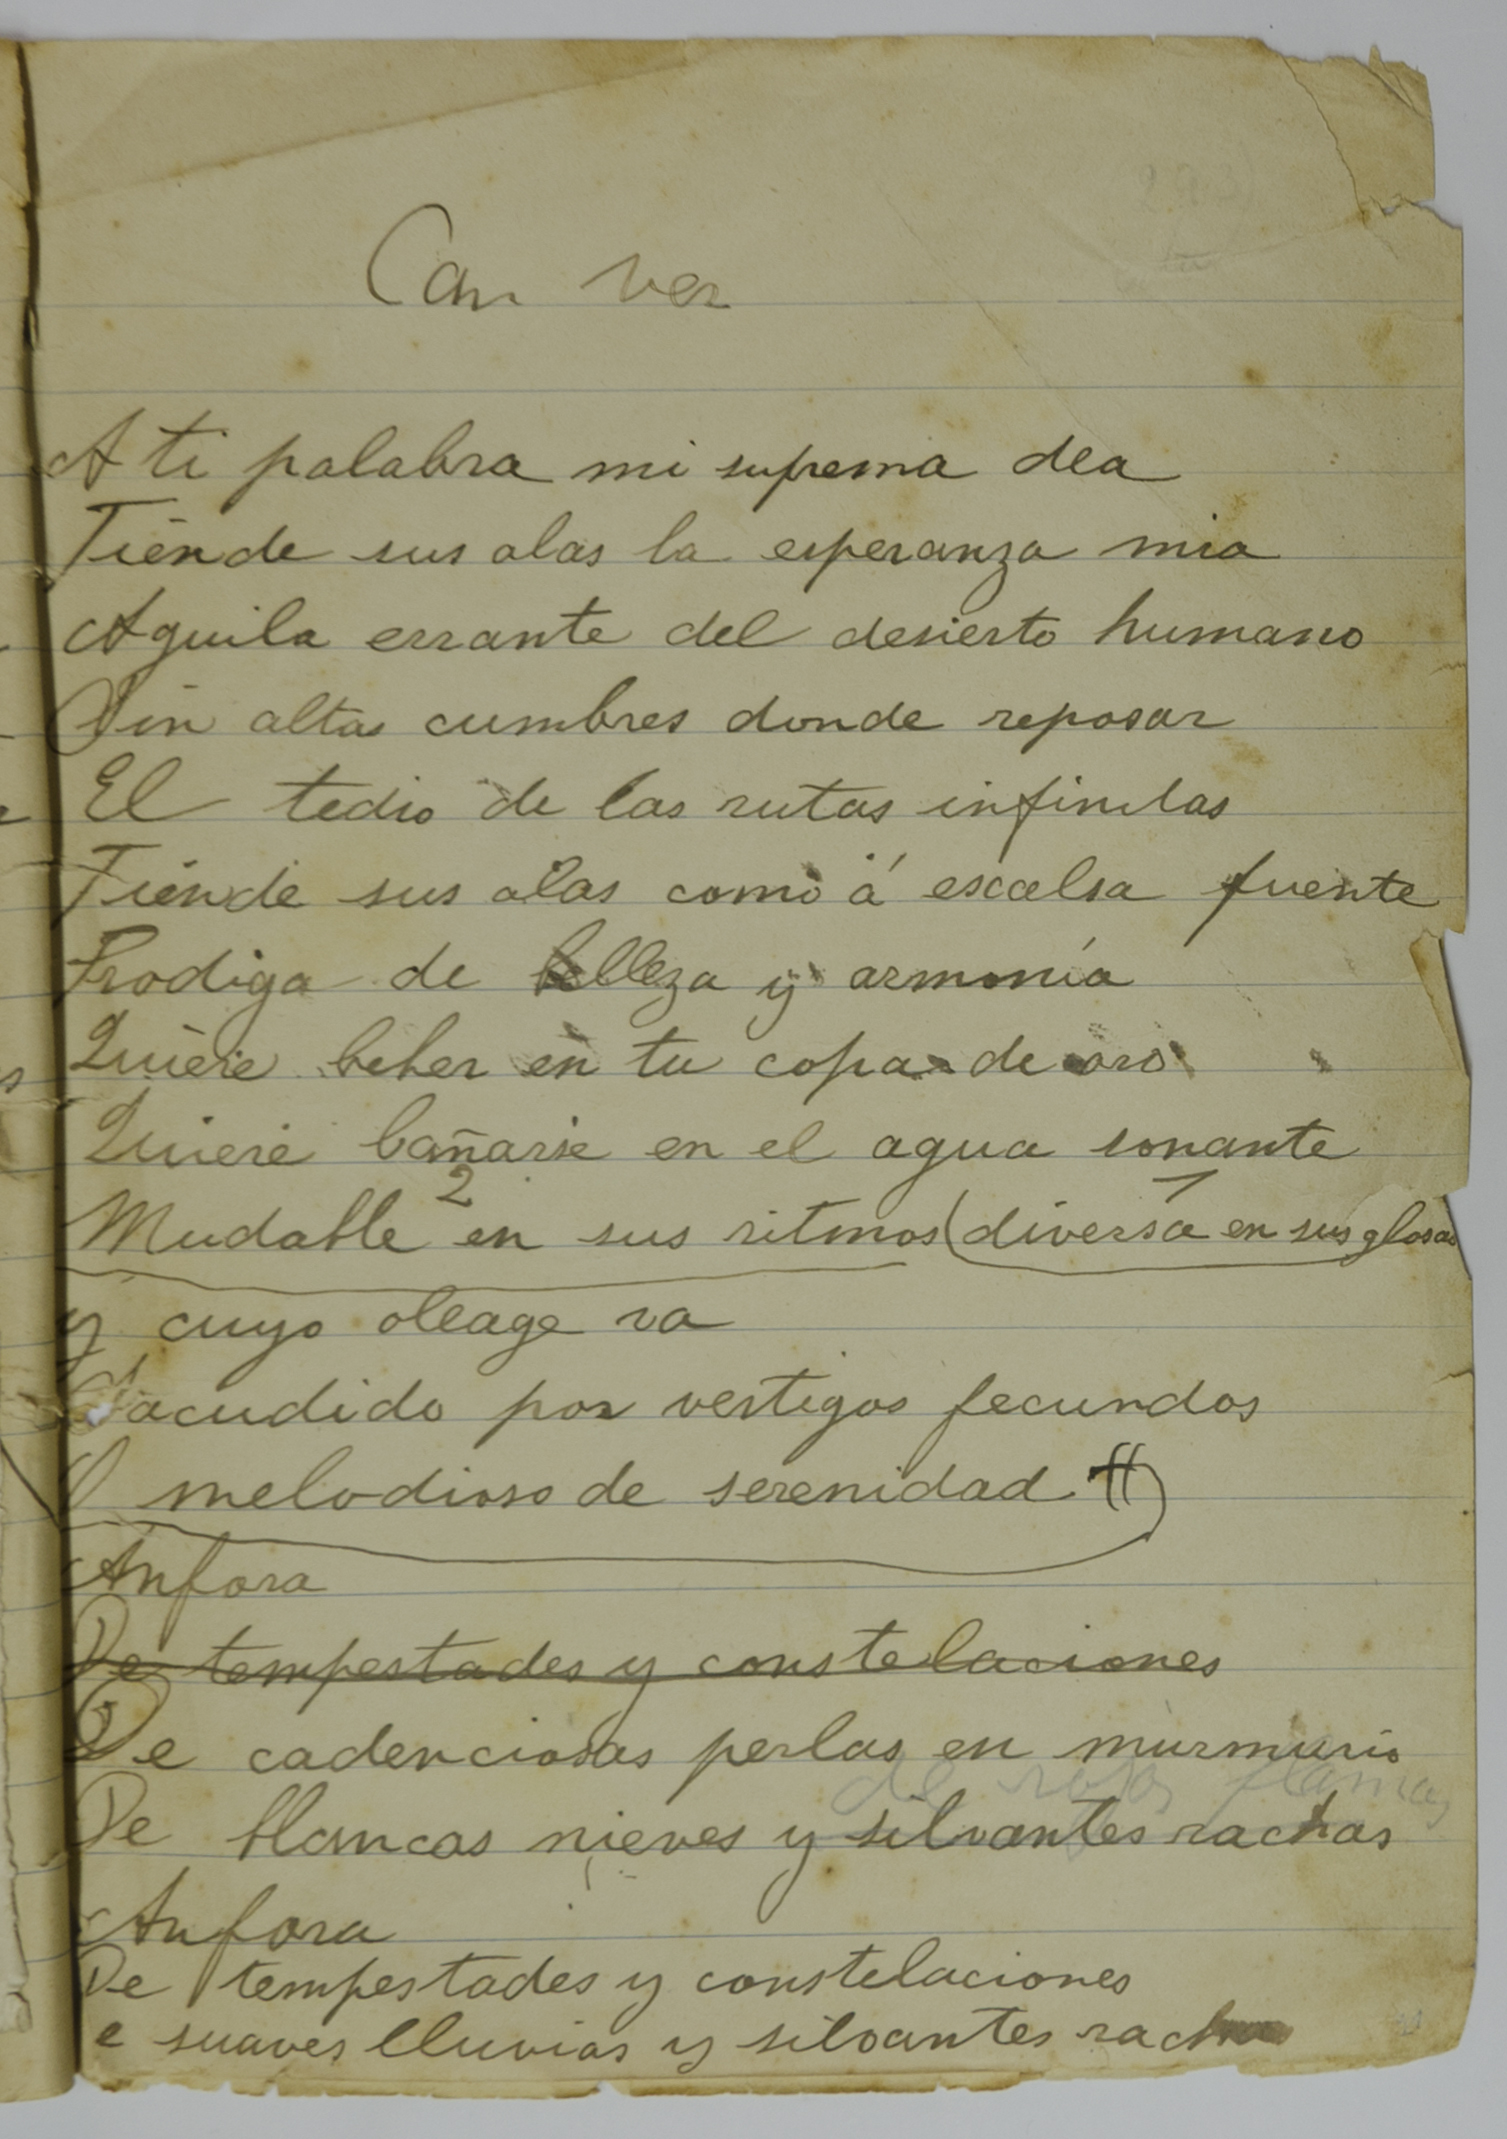 Can ver
A ti palabra mi suprema dea
Tiende sus alas la esperanza mia
Aguila errante del desierto humano
Sin altas cumbres donde reposar
El tedio de las rutas infinitas
Tiende sus alas como á escelsa fuente
Prodiga de belleza y armonía
Quiere beber en tu copa de oro
Quiere bañarse en el agua sonante
2 1
Mudable en sus ritmos (diversa en sus glosas
y cuyo oleage va
Sacudido por vestigos fecundos
O melodioso de serenidad #)
Anfora
De tempestades y constelaciones
De cadenciosas perlas en murmurio
de rojas flamas
De blancas nieves y silvantes rachas
Anfora
De tempestades y constelaciones
e suaves lluvias y silvantes racha